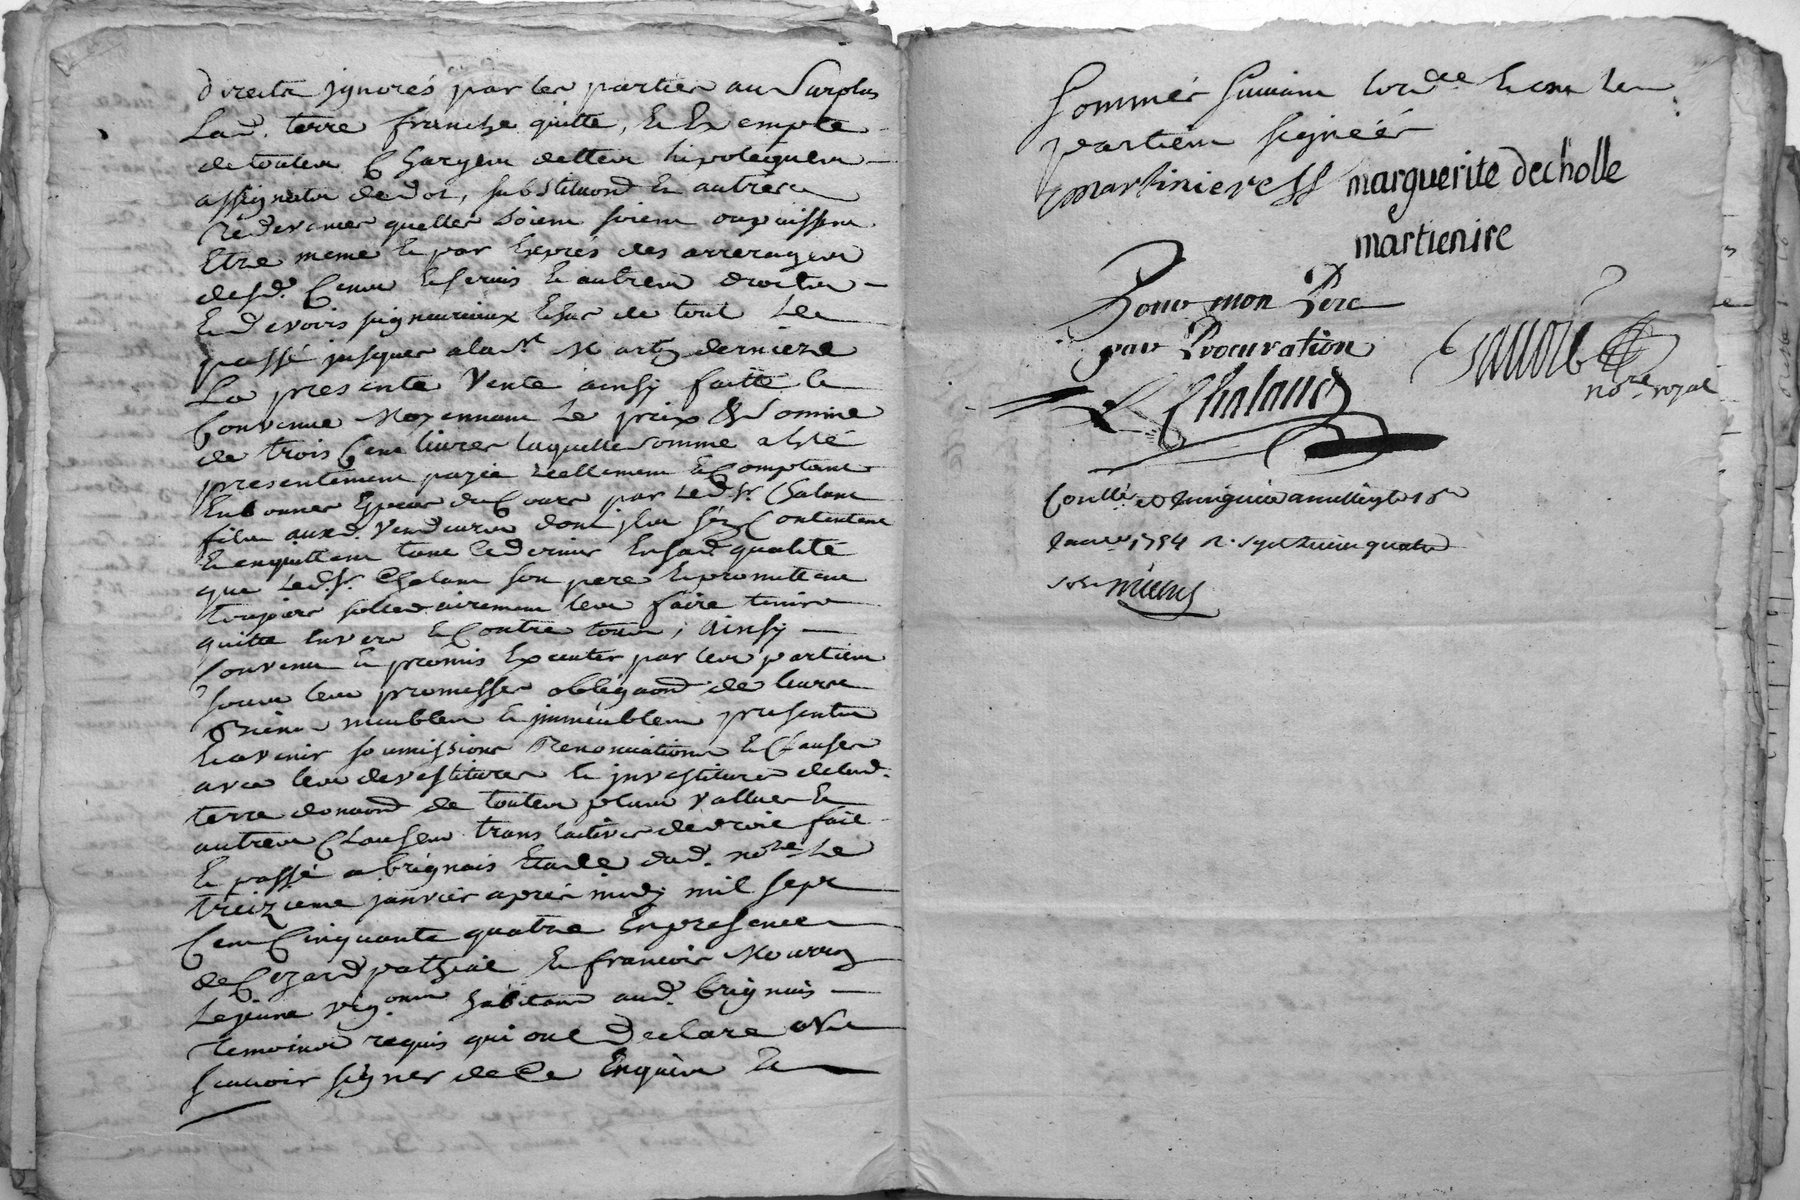 directe ignorés par les parties au Surplus
Lad. terre franche quitte, Et Exempte
de toutes Charges dettes hipoteques
assignats de dot, substituond Et autres
Redevances quelles soient ou puissent
Etre meme Et par Exprés des arrerages
desd. Cens Et servis Et autres droits
Et devoirs seigneuriaux Et ce de tout Le
passé jusques a la St Martin derniere
La presente Vente ainsy faitte Et
Convenue Moyennant Le prix & Somme
de trois Cent livres laquelle somme a Eté
presentement payée réellement Et Comptant
En bonnes Especes de Cours par Led. Sr. Chaland
fils auxd. Vendeurs dont ils se Contentent
Et en quittent tant Ce dernier En sad. qualité
que Led. Sr. Chaland son pere Et promettent
toujours sollidairement leur faire tenir
quitte Envers Et Contre tous, Ainsy
Convenu Et promis Executer par les parties
sous leurs promesses obligaond de leurs
Biens meubles Et immeubles presents
Et avenir soumissions Renonciations Et Clauses
avec les devestitures Et investitures de lad.
terre donaond de toutes plus vallues Et
autres Clauses translatives de droit fait
Et passé a brignais Etude dud. nore Le
treizieme janvier après midy mil sept
Cent Cinquante quatre En presence
de Cezard pathiat Et francois Mourron
Le jeune vignerons habitans aud. brignais
temoins requis qui ont declaré ne
scavoir signer de Ce Enquis Et
Sommés suivant l'ordce. Et ont les
parties signéés
martiniere marguerite decholle
martienire
Pour mon Pere
par Procuration
Chaland
nore royal
Conllé et a brignais le 18e
Janvier 1754 R.